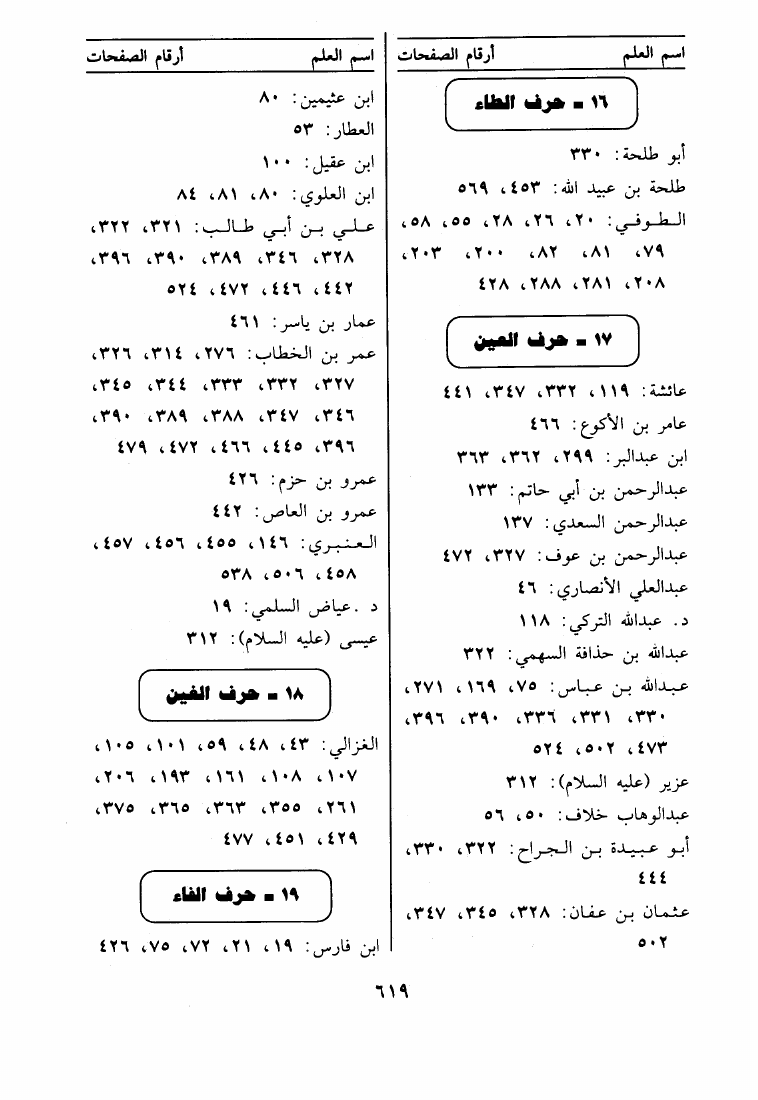 اسم العلم أرقام الصفحات
١٦ - حرف الطاء
أبو طلحة: ٣٣٠
طلحة بن عبيد الله: ٤٥٣، ٥٦٩
الطوفي: ٢٠، ٢٦، ٢٨، ٥٥، ٥٨،
٧٩، ٨١، ٨٢، ٢٠٠، ٢٠٣،
٢٠٨، ٢٨١، ٢٨٨، ٤٢٨
١٧ - حرف العين
عائشة: ١١٩، ٣٣٢، ٣٤٧، ٤٤١
عامر بن الأكوع: ٤٦٦
ابن عبدالبر: ٢٩٩، ٣٦٢، ٣٦٣
عبدالرحمن بن أبي حاتم: ١٣٣
عبدالرحمن السعدي: ١٣٧
عبدالرحمن بن عوف: ٣٢٧، ٤٧٢
عبدالعلي الأنصاري: ٤٦
د. عبدالله التركي: ١١٨
عبدالله بن حذافة السهمي: ٣٢٢
عبدالله بن عباس: ٧٥، ١٦٩، ٢٧١،
٣٣٠، ٣٣١، ٣٣٦، ٣٩٠، ٣٩٦،
٤٧٣، ٥٠٢، ٥٢٤
عزير (عليه السلام): ٣١٢
عبدالوهاب خلاف: ٥٠، ٥٦
أبو عبيدة بن الجراح: ٣٢٢، ٣٣٠،
٤٤٤
عثمان بن عفان: ٣٢٨، ٣٤٥، ٣٤٧،
٥٠٢
اسم العلم أرقام الصفحات
ابن عثيمين: ٨٠
العطار: ٥٣
ابن عقيل: ١٠٠
ابن العلوي: ٨٠، ٨١، ٨٤
علي بن أبي طالب: ٣٢١، ٣٢٢،
٣٢٨، ٣٤٦، ٣٨٩، ٣٩٠، ٣٩٦،
٤٤٢، ٤٤٦، ٤٧٢، ٥٢٤
عمار بن ياسر: ٤٦١
عمر بن الخطاب: ٢٧٦، ٣١٤، ٣٢٦،
٣٢٧، ٣٣٢، ٣٣٣، ٣٤٤، ٣٤٥،
٣٤٦، ٣٤٧، ٣٨٨، ٣٨٩، ٣٩٠،
٣٩٦، ٤٤٥، ٤٦٦، ٤٧٢، ٤٧٩
عمرو بن حزم: ٤٢٦
عمرو بن العاص: ٤٤٢
العنبري: ١٤٦، ٤٥٥، ٤٥٦، ٤٥٧،
٤٥٨، ٥٠٦، ٥٣٨
د .عياض السلمي: ١٩
عيسى (عليه السلام): ٣١٢
١٨ - حرف الغين
الغزالي: ٤٣، ٤٨، ٥٩، ١٠١، ١٠٥،
١٠٧، ١٠٨، ١٦١، ١٩٣، ٢٠٦،
٢٦١، ٣٥٥، ٣٦٣، ٣٦٥، ٣٧٥،
٤٢٩، ٤٥١، ٤٧٧
١٩ - حرف الفاء
ابن فارس: ١٩، ٢١، ٧٢، ٧٥، ٤٢٦
٦١٩